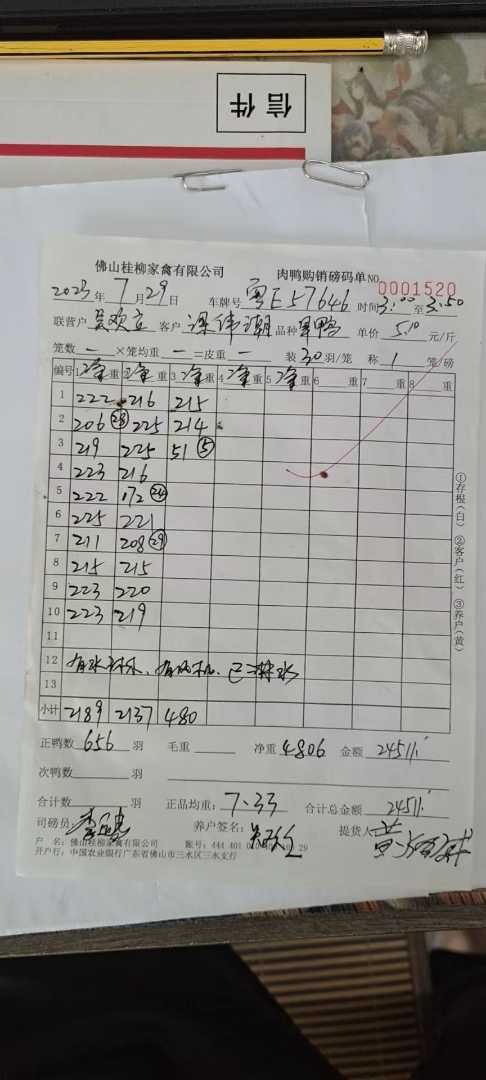 信件
佛山桂柳家禽有限公司 肉鸭购销磅码单 NO 0001520
2023年 7月29日 车牌号 粤E57646 时间 3:00 至 3:50
联营户 欢立 客户 梁伟潮 品种 鸭 单价 5.10 元/斤
笼数 一 ×笼均重 一 =皮重 一 装 30 羽/笼 称 1 笼/磅
编号 1净重 2净重 3净重 4净重 5净重 6 重 7 重 8 重
1 222 216 215
2 206 (28) 225 214
3 219 225 51 (5)
4 223 216
5 222 172 (24)
6 225 221
7 211 208 (29)
8 215 215
9 223 220
10 223 219
11
12 有水 有风机、已淋水
13
小计 2189 2137 480
正鸭数 656 羽 毛重 净重 4806 金额 24511
次鸭数 羽
合计数 羽 正品均重: 7.33 合计总金额 24511
司磅员: 养户签名: 提货人
户 名: 佛山桂柳家禽有限公司 账号: 444 401 0 29
开户行: 中国农业银行广东省佛山市三水区三水支行
①存根(白) ②客户(红) ③养户(黄)